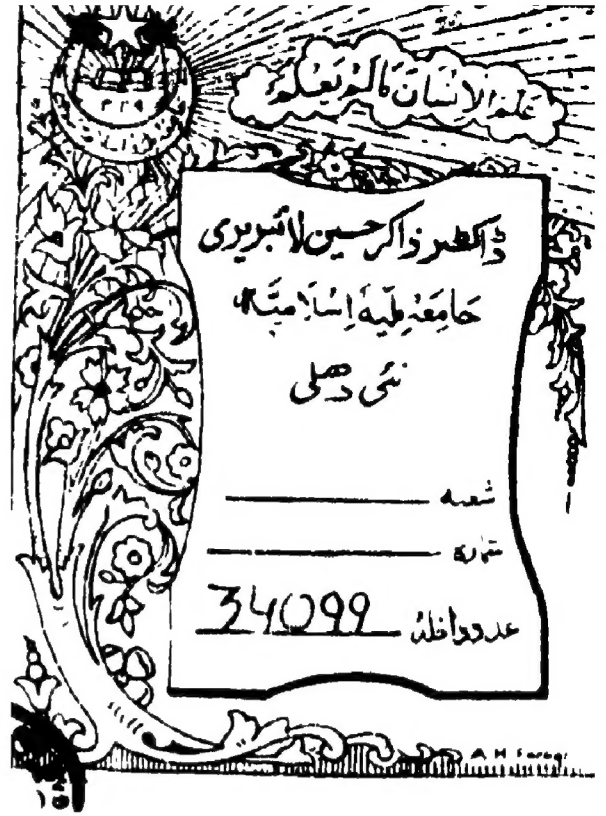 عَلَّمَ الْاِنْسَانَ مَا لَمْ يَعْلَمْ
ڈاکٹر ذاکر حسین لائبریری
جامعہ ملیہ اسلامیہ
نئی دھلی
شعبہ
شمارہ
عدد داخلہ 34099